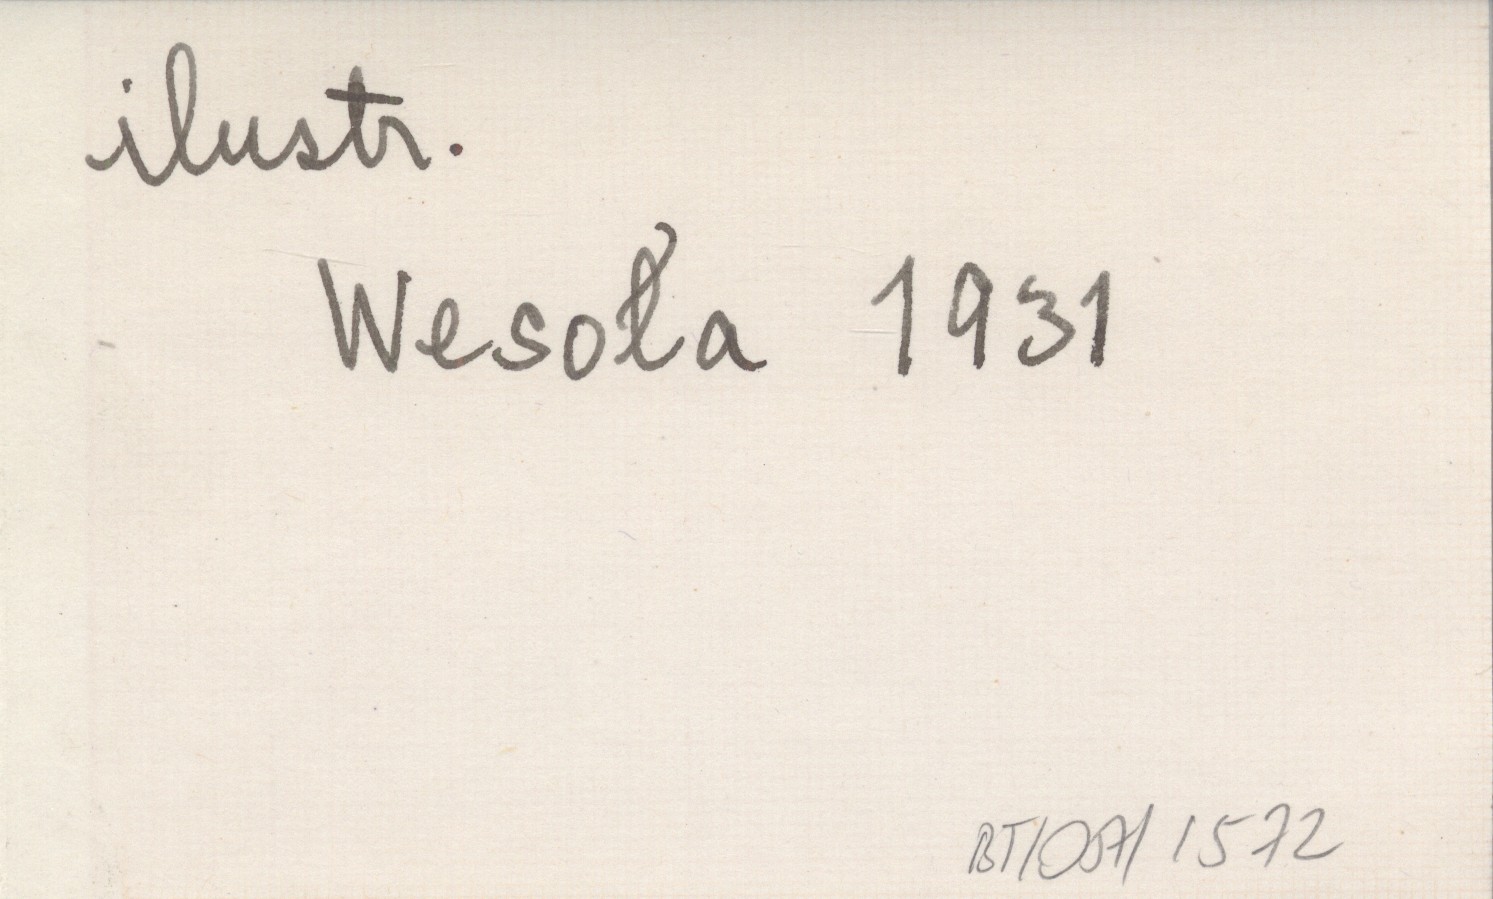 ilustr.
Wesoła 1931
BT/057/1572